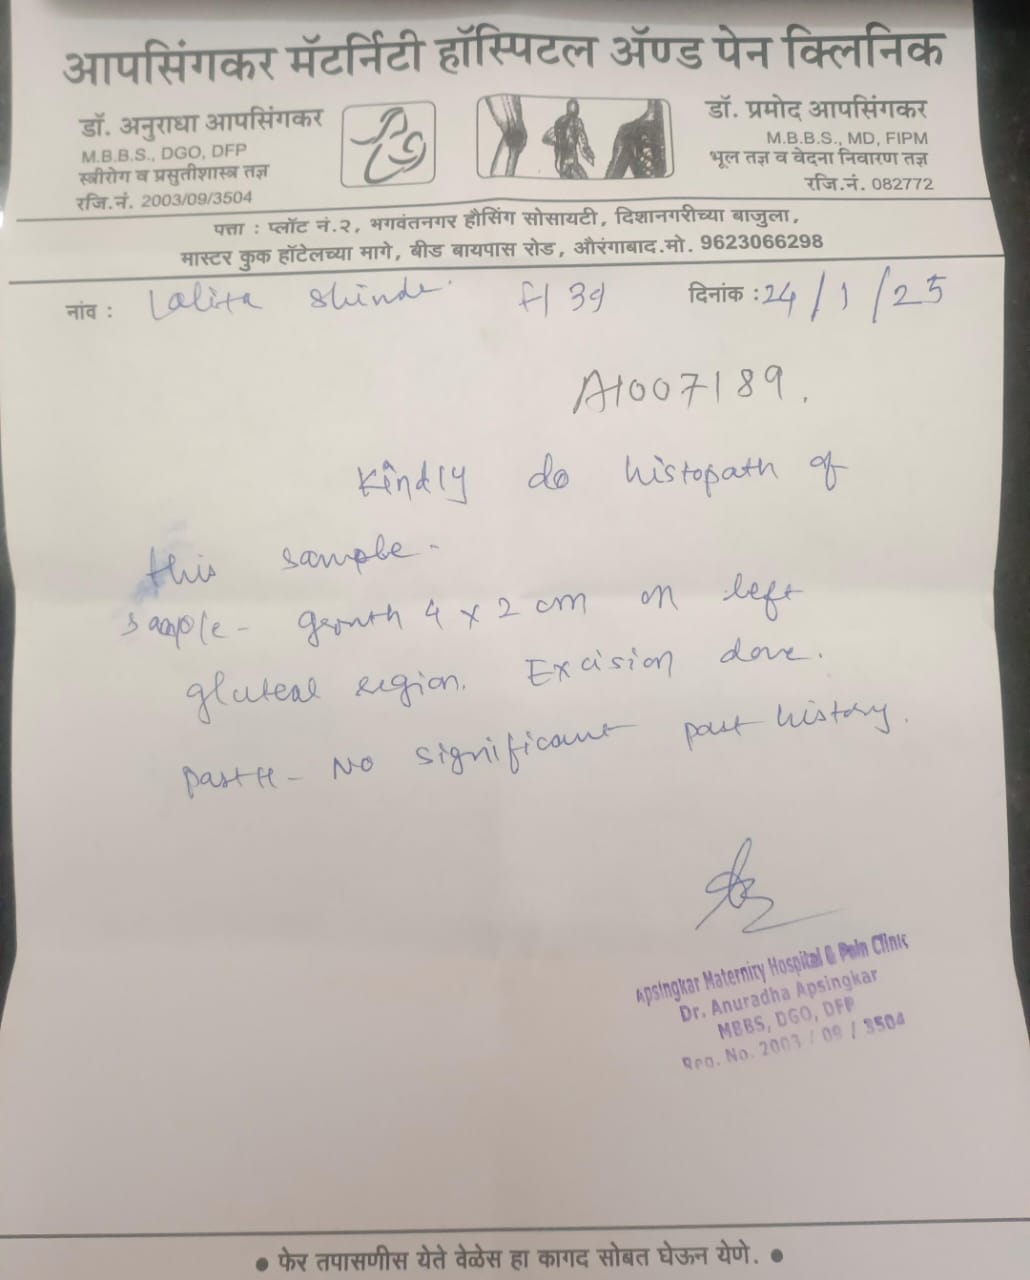 आपसिंगकर मॅटर्निटी हॉस्पिटल ॲण्ड पेन क्लिनिक
डॉ. अनुराधा आपसिंगकर
M.B.B.S., DGO, DFP
स्त्रीरोग व प्रसुतीशास्त्र तज्ञ
रजि.नं. 2003/09/3504
डॉ. प्रमोद आपसिंगकर
M.B.B.S., MD, FIPM
भूल तज्ञ व वेदना निवारण तज्ञ
रजि.नं. 082772
पत्ता : प्लॉट नं.२, भगवंतनगर हौसिंग सोसायटी, दिशानगरीच्या बाजुला,
मास्टर कुक हॉटेलच्या मागे, बीड बायपास रोड, औरंगाबाद.मो. 9623066298
नांव : Lalita Shinde. F/39 दिनांक :24/1/25
A1007189.
Kindly do histopath of
this sample-
sample- growth 4 x 2 cm on left
gluteal region. Excision done.
past H- No significant past history.
Apsingkar Maternity Hospital & Pain Clinic
Dr. Anuradha Apsingkar
MBBS, DGO, DFP
Reg. No. 2003 / 09 / 3504
● फेर तपासणीस येते वेळेस हा कागद सोबत घेऊन येणे. ●